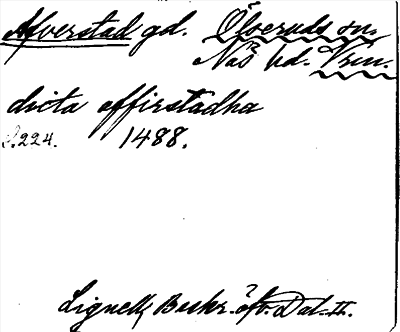 Afverstad gd. Ölseruds sn.
Näs hd. Vrm.
dicta affirstadha
S. 224. 1488.
Lignell, Beskr. öfv. Dal. II.